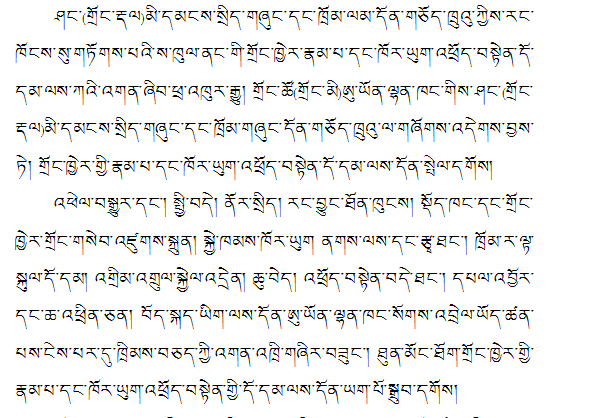 ཤང་(གྲོང་རྡལ)མི་དམངས་སྲིད་གཞུང་དང་ཁྲོམ་ལམ་དོན་གཅོད་ཁྲུའུ་ཀྱིས་རང་
ཁོངས་སུ་གཏོགས་པའི་ས་ཁུལ་ནང་གི་གྲོང་ཁྱེར་རྣམ་པ་དང་ཁོར་ཡུག་འཕྲོད་བསྟེན་དོ་
དམ་ལས་ཀའི་འགན་ཞིབ་ཕྲ་འཁུར་རྒྱུ། གྲོང་ཚོ(གྲོང་མི)ཨུ་ཡོན་ལྷན་ཁང་གིས་ཤང་(གྲོང་
རྡལ)མི་དམངས་སྲིད་གཞུང་དང་ཁྲོམ་གཞུང་དོན་གཅོད་ཁྲུའུ་ལ་གཞོགས་འདེགས་བྱས་
ཏེ། གྲོང་ཁྱེར་གྱི་རྣམ་པ་དང་ཁོར་ཡུག་འཕྲོད་བསྟེན་དོ་དམ་ལས་དོན་སྤེལ་དགོས།
འཕེལ་བསྒྱུར་དང་། སྤྱི་བདེ། ནོར་སྲིད། རང་བྱུང་ཐོན་ཁུངས། སྡོད་ཁང་དང་གྲོང་
ཁྱེར་གྲོང་གསེབ་འཛུགས་སྐྲུན། སྐྱེ་ཁམས་ཁོར་ཡུག ནགས་ལས་དང་རྩྭ་ཐང་། ཁྲོམ་ར་ལྟ་
སྐུལ་དོ་དམ། འགྲིམ་འགྲུལ་སྐྱེལ་འདྲེན། ཆུ་བེད། འཕྲོད་བསྟེན་བདེ་ཐང་། དཔལ་འབྱོར་
དང་ཆ་འཕྲིན་ཅན། བོད་སྐད་ཡིག་ལས་དོན་ཨུ་ཡོན་ལྷན་ཁང་སོགས་འབྲེལ་ཡོད་ཚན་
པས་ངེས་པར་དུ་ཁྲིམས་བཅད་ཀྱི་འགན་འཁྲི་གཞིར་བཟུང་། ཐུན་མོང་ཐོག་གྲོང་ཁྱེར་གྱི་
རྣམ་པ་དང་ཁོར་ཡུག་འཕྲོད་བསྟེན་གྱི་དོ་དམ་ལས་དོན་ཡག་པོ་སྒྲུབ་དགོས།